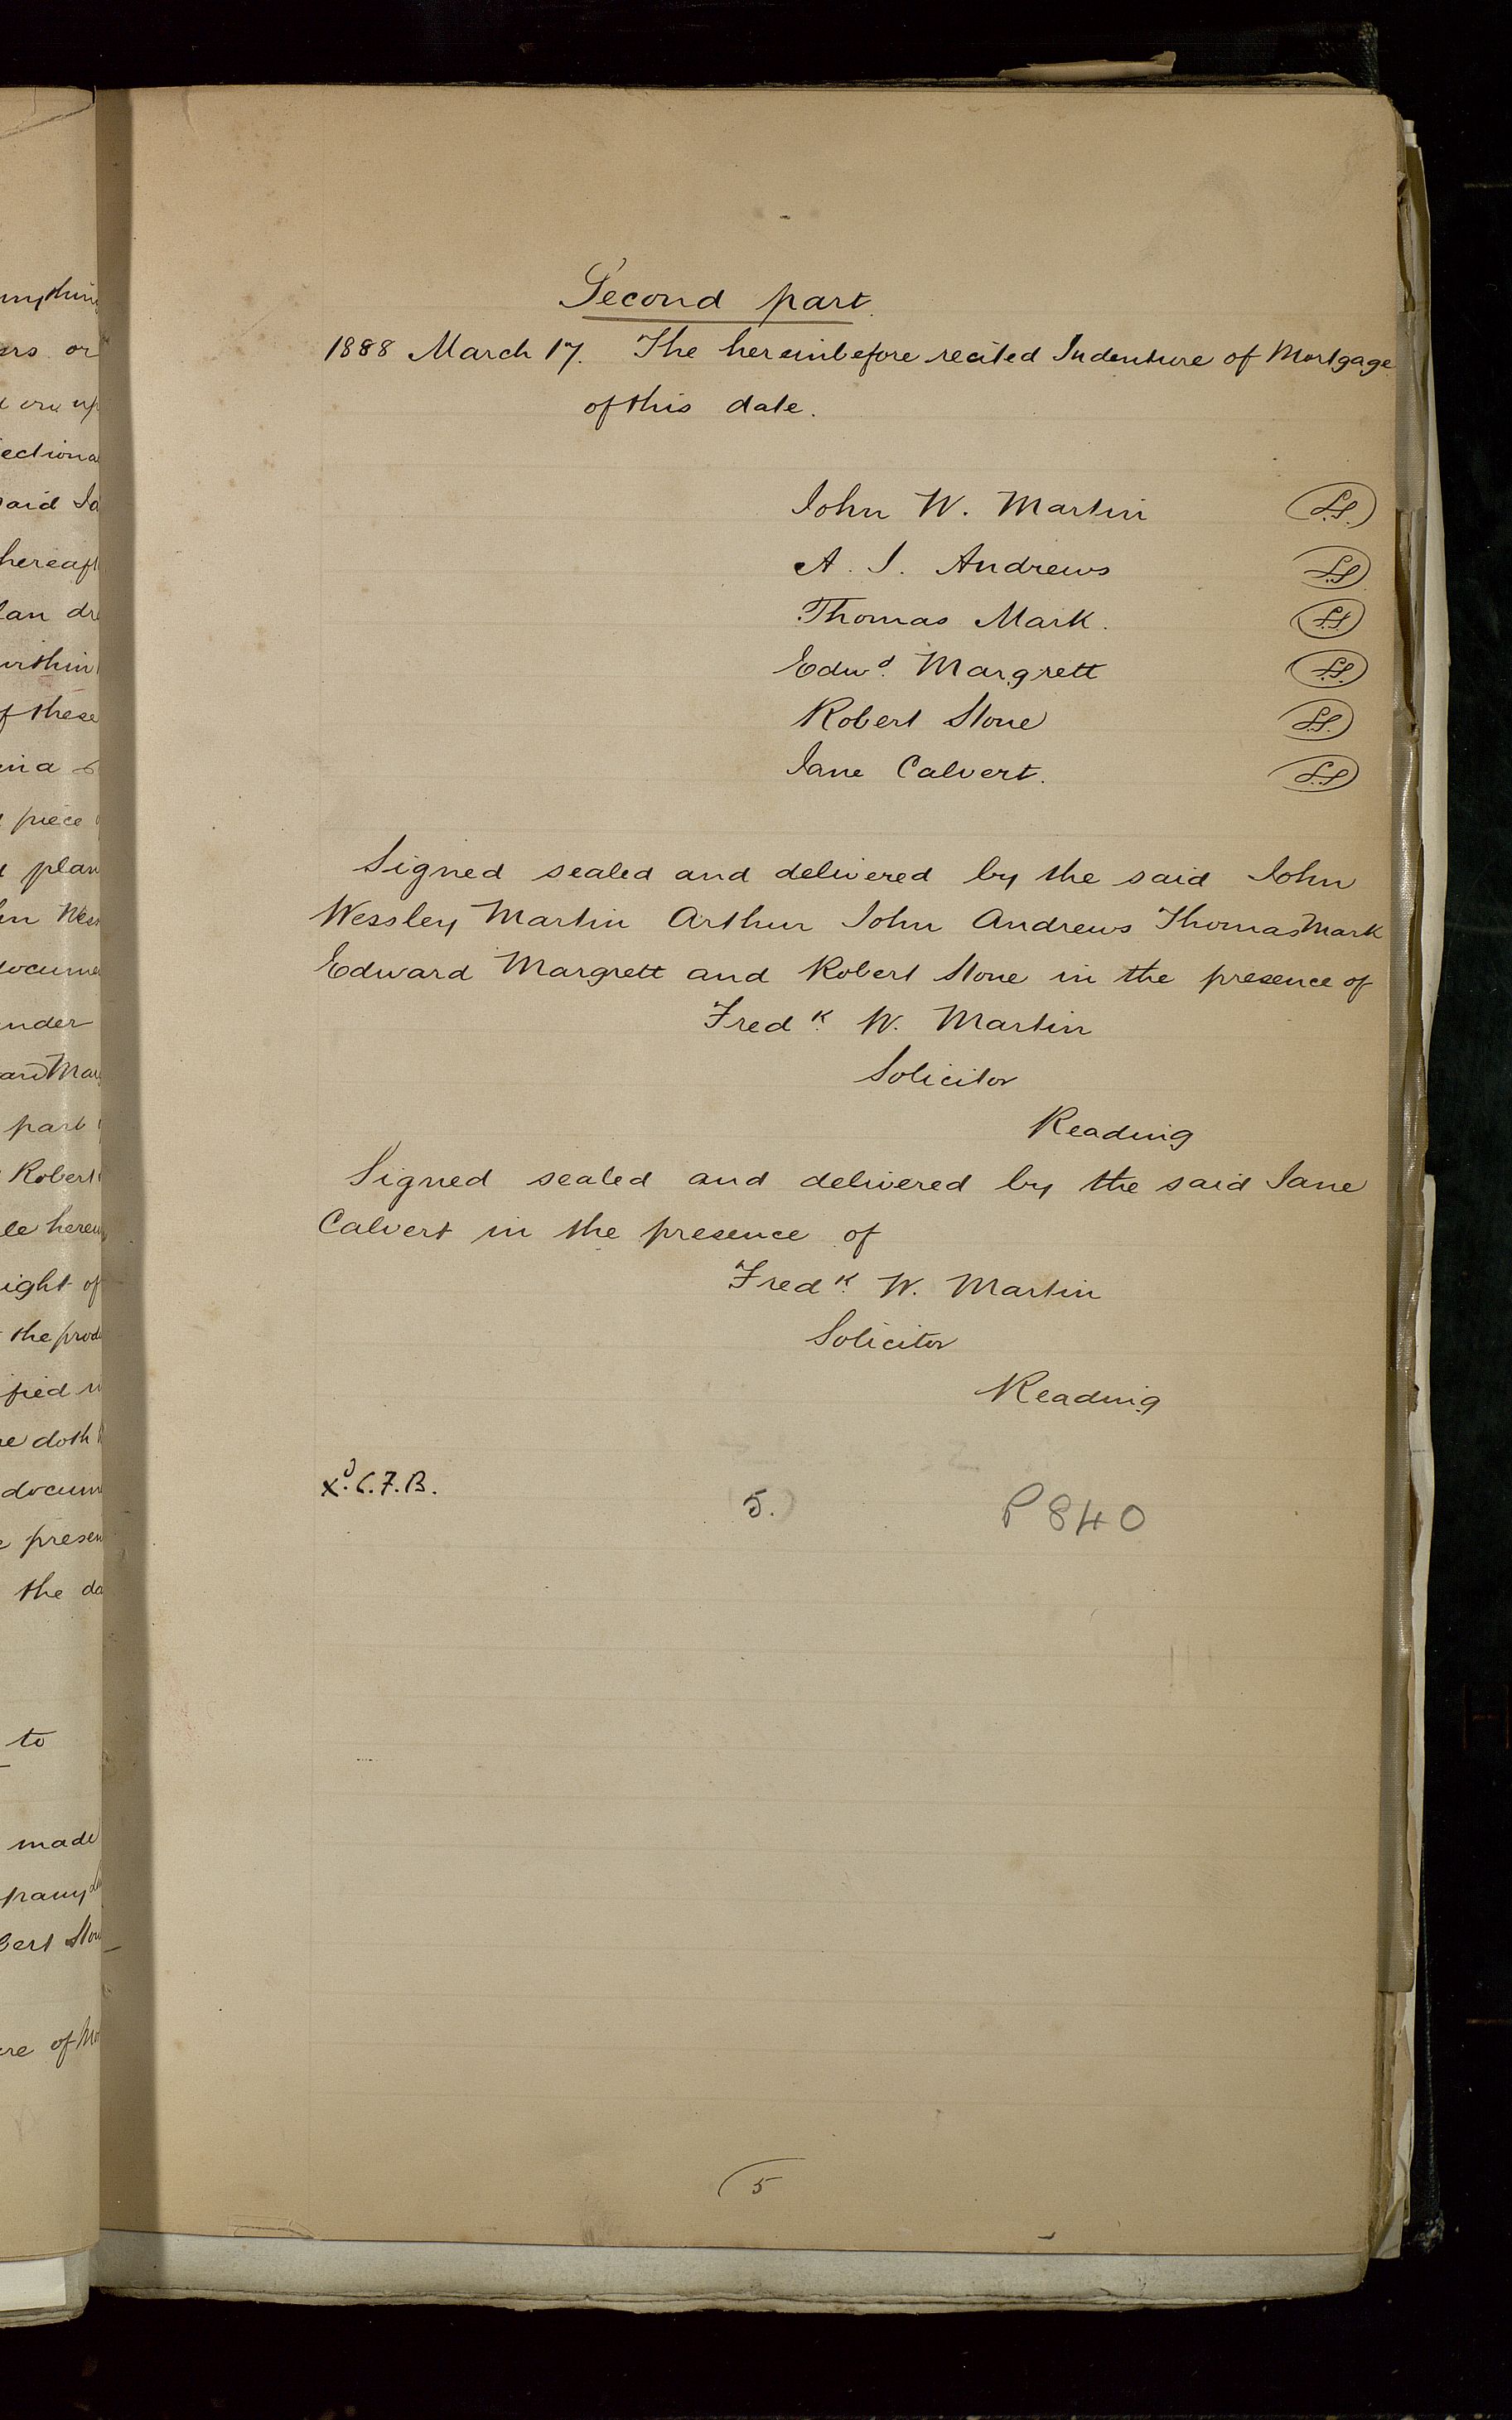 Second part.
1888 March 17. The hereinbefore recited Indenture of Mortgage
of this date.
John W. Martin L.S.
A. J. Andrews L.S.
Thomas Mark. L.S.
Edwd. Margrett L.S.
Robert Stone L.S.
Jane Calvert. L.S.
Signed sealed and delivered by the said John
Wessley Martin Arthur John Andrews Thomas Mark
Edward Margrett and Robert Stone in the presence of
Fredk. W. Martin
Solicitor
Reading
Signed sealed and delivered by the said Jane
Calvert in the presence of
Fredk. W. Martin
Solicitor
Reading
Xd. C.F.B.
5.
P840
5